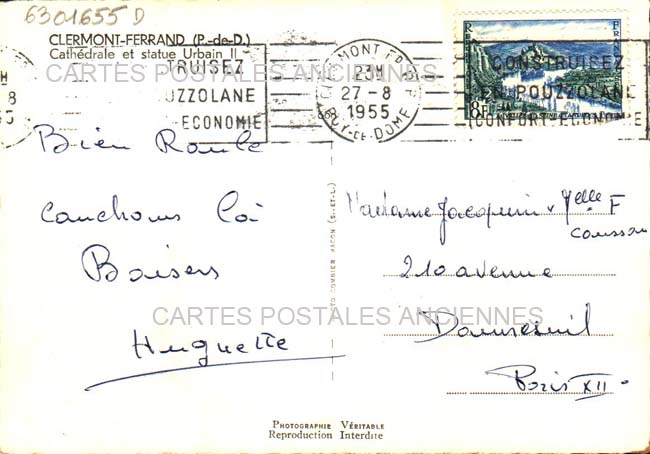 6301655 D
CLERMONT-FERRAND (P.-de-D.)
Cathédrale et statue Urbain II
CARTES POSTALES ANCIENNES
TRUISEZ
UZZOLANE
-ECONOMIE
23H
27-8
1955
PUY-DE-DOME
CONSTRUISEZ
EN POUZZOLANE
CONFORT-ECONOMIE
8F
Bien Roulé
couchons ici
Baisers
Huguette
Madame Jacquin & Melle F
210 avenue
Daumesnil
Paris XII
CARTES POSTALES ANCIENNES
COMBIER MACON (S.-ET-L.)
PHOTOGRAPHIE VÉRITABLE
Reproduction Interdite